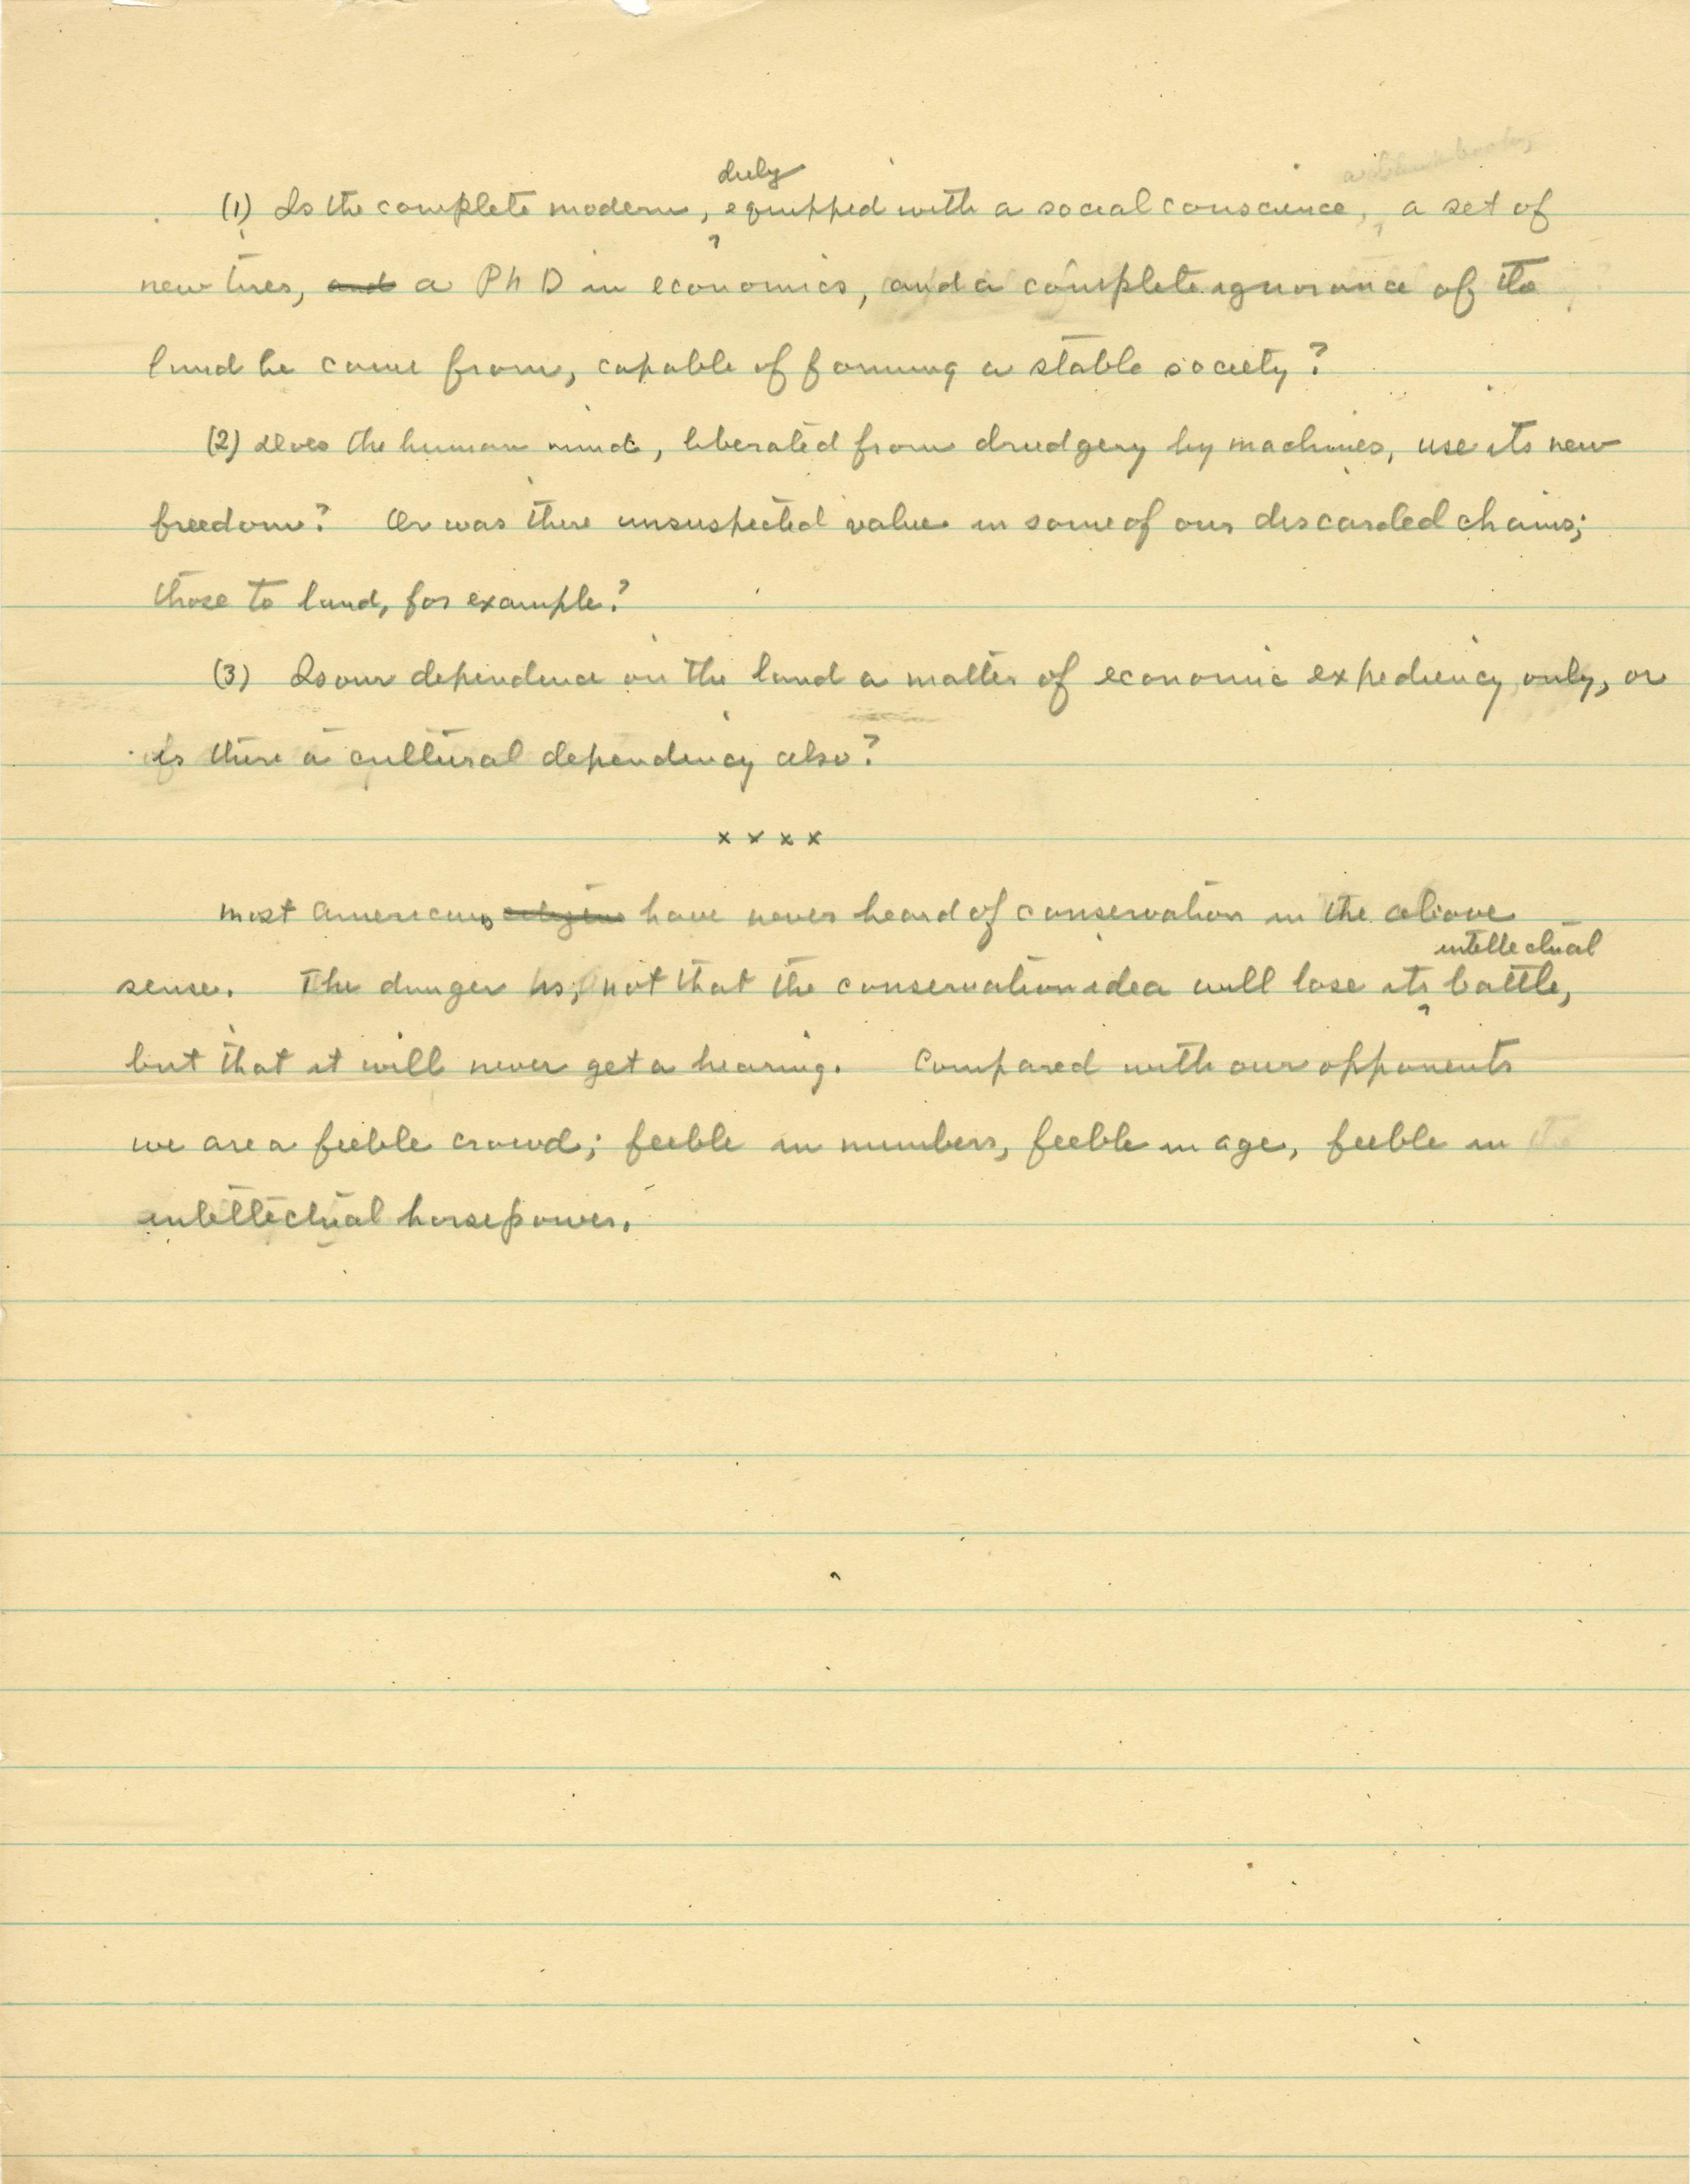 duly
(1) Is the complete modern, equipped with a social conscience, a set of
new tires, and a PhD in economics, and a complete ignorance of the
land he came from, capable of forming a stable society?
(2) Does the human mind, liberated from drudgery by machines, use its new
freedom? Or was there unsuspected value in some of our discarded chains;
those to land, for example?
(3) Is our dependence on the land a matter of economic expediency only, or
is there a cultural dependency also?
x x x x
Most Americans have never heard of conservation in the above
intellectual
sense. The danger is, not that the conservation idea will lose its battle,
but that it will never get a hearing. Compared with our opponents
we are a feeble crowd; feeble in numbers, feeble in age, feeble in
intellectual horsepower.